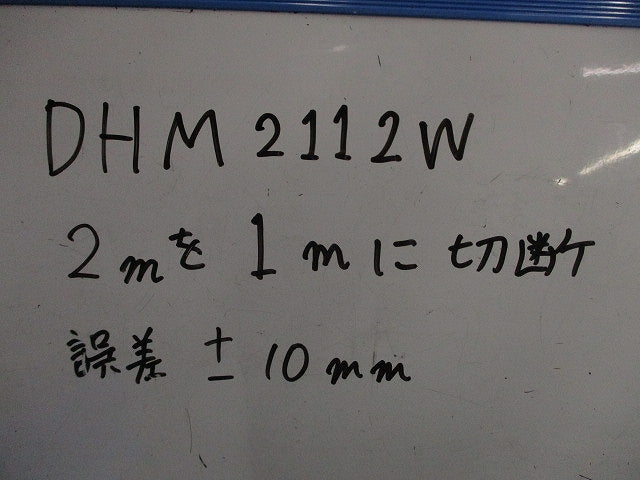 DHM2112W
2mを1mに切断
誤差 ±10mm